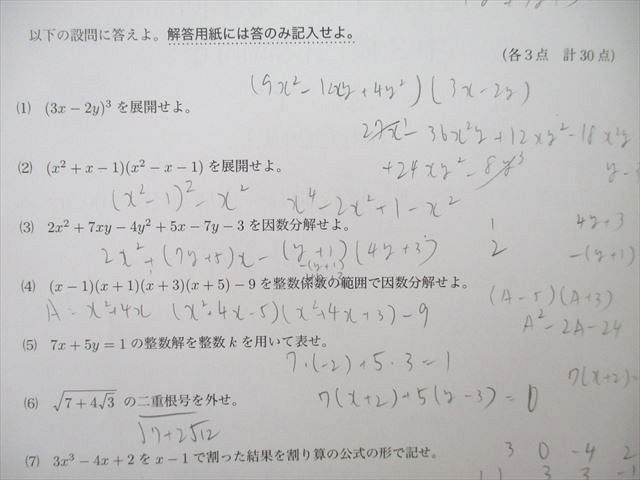 以下の設問に答えよ。解答用紙には答のみ記入せよ。
(各3点 計30点)
(9x²-12xy+4y²)(3x-2y)
(1) (3x-2y)³ を展開せよ。
27x³-36x²y+12xy²-18x²y
+24xy²-8y³
(2) (x²+x-1)(x²-x-1) を展開せよ。
(x²-1)²-x² x⁴-2x²+1-x²
(3) 2x²+7xy-4y²+5x-7y-3 を因数分解せよ。
1 4y+3
2x²+(7y+5)x-(y+1)(4y+3)
2 -(y+1)
(4) (x-1)(x+1)(x+3)(x+5)-9 を整数係数の範囲で因数分解せよ。
(A-5)(A+3)
A=x²+4x (x²+4x-5)(x²+4x+3)-9
A²-2A-24
(5) 7x+5y=1 の整数解を整数 k を用いて表せ。
7·(-2)+5·3=1
7(x+2)=
7(x+2)+5(y-3)=0
(6) √7+4√3 の二重根号を外せ。
√7+2√12
(7) 3x³-4x+2 を x-1 で割った結果を割り算の公式の形で記せ。
3 0 -4 2
3 3 -1